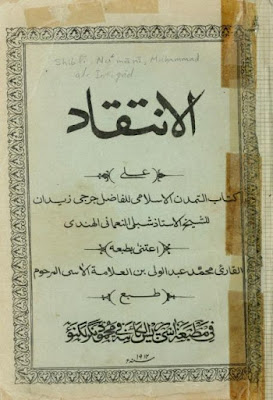 Shibli Nu'mani, Muhammad
al-Intiqad
الانتقاد
على
كتاب التمدن الاسلامى للفاضل جرجى زيدان
للشيخ الاستاذ شبلى النعمانى الهندى
اعتنى بطبعه
القارى محمد عبد الولى بن العلامة الآسى المرحوم
طبع
فى مطبعة
١٩١٢